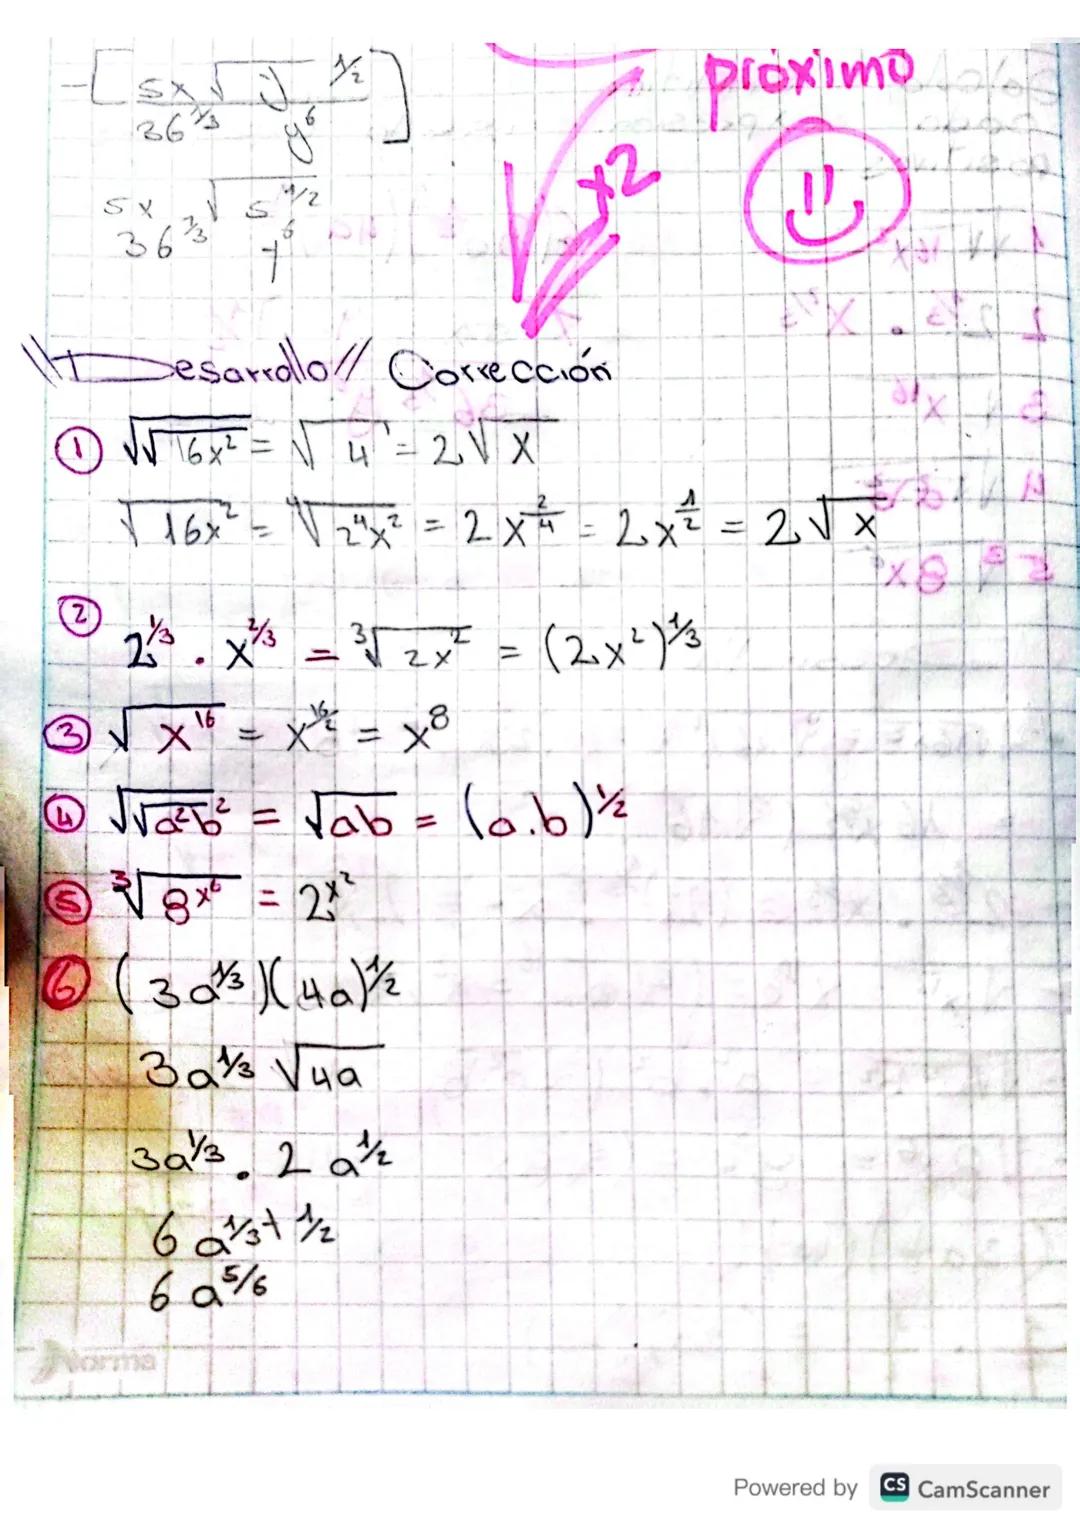 -[5x√y^1/2 / 36^2/3 y^6]
próximo
x2
5x √5^1/2
36^2/3 y^6
\\Desarrollo// Corrección
① √√16x² = √4 = 2√x
√16x² = ⁴√2⁴x² = 2x^2/4 = 2x^1/2 = 2√x
② 2^1/3 . x^2/3 = ³√2x² = (2x²)^1/3
③ √x^16 = x^16/2 = x^8
④ √√a²b² = √ab = (a.b)^1/2
⑤ ³√8x^6 = 2x²
⑥ (3a^1/3)(4a)^1/2
3a^1/3 √4a
3a^1/3 . 2a^1/2
6a^1/3+1/2
6a^5/6
Norma
Powered by CS CamScanner